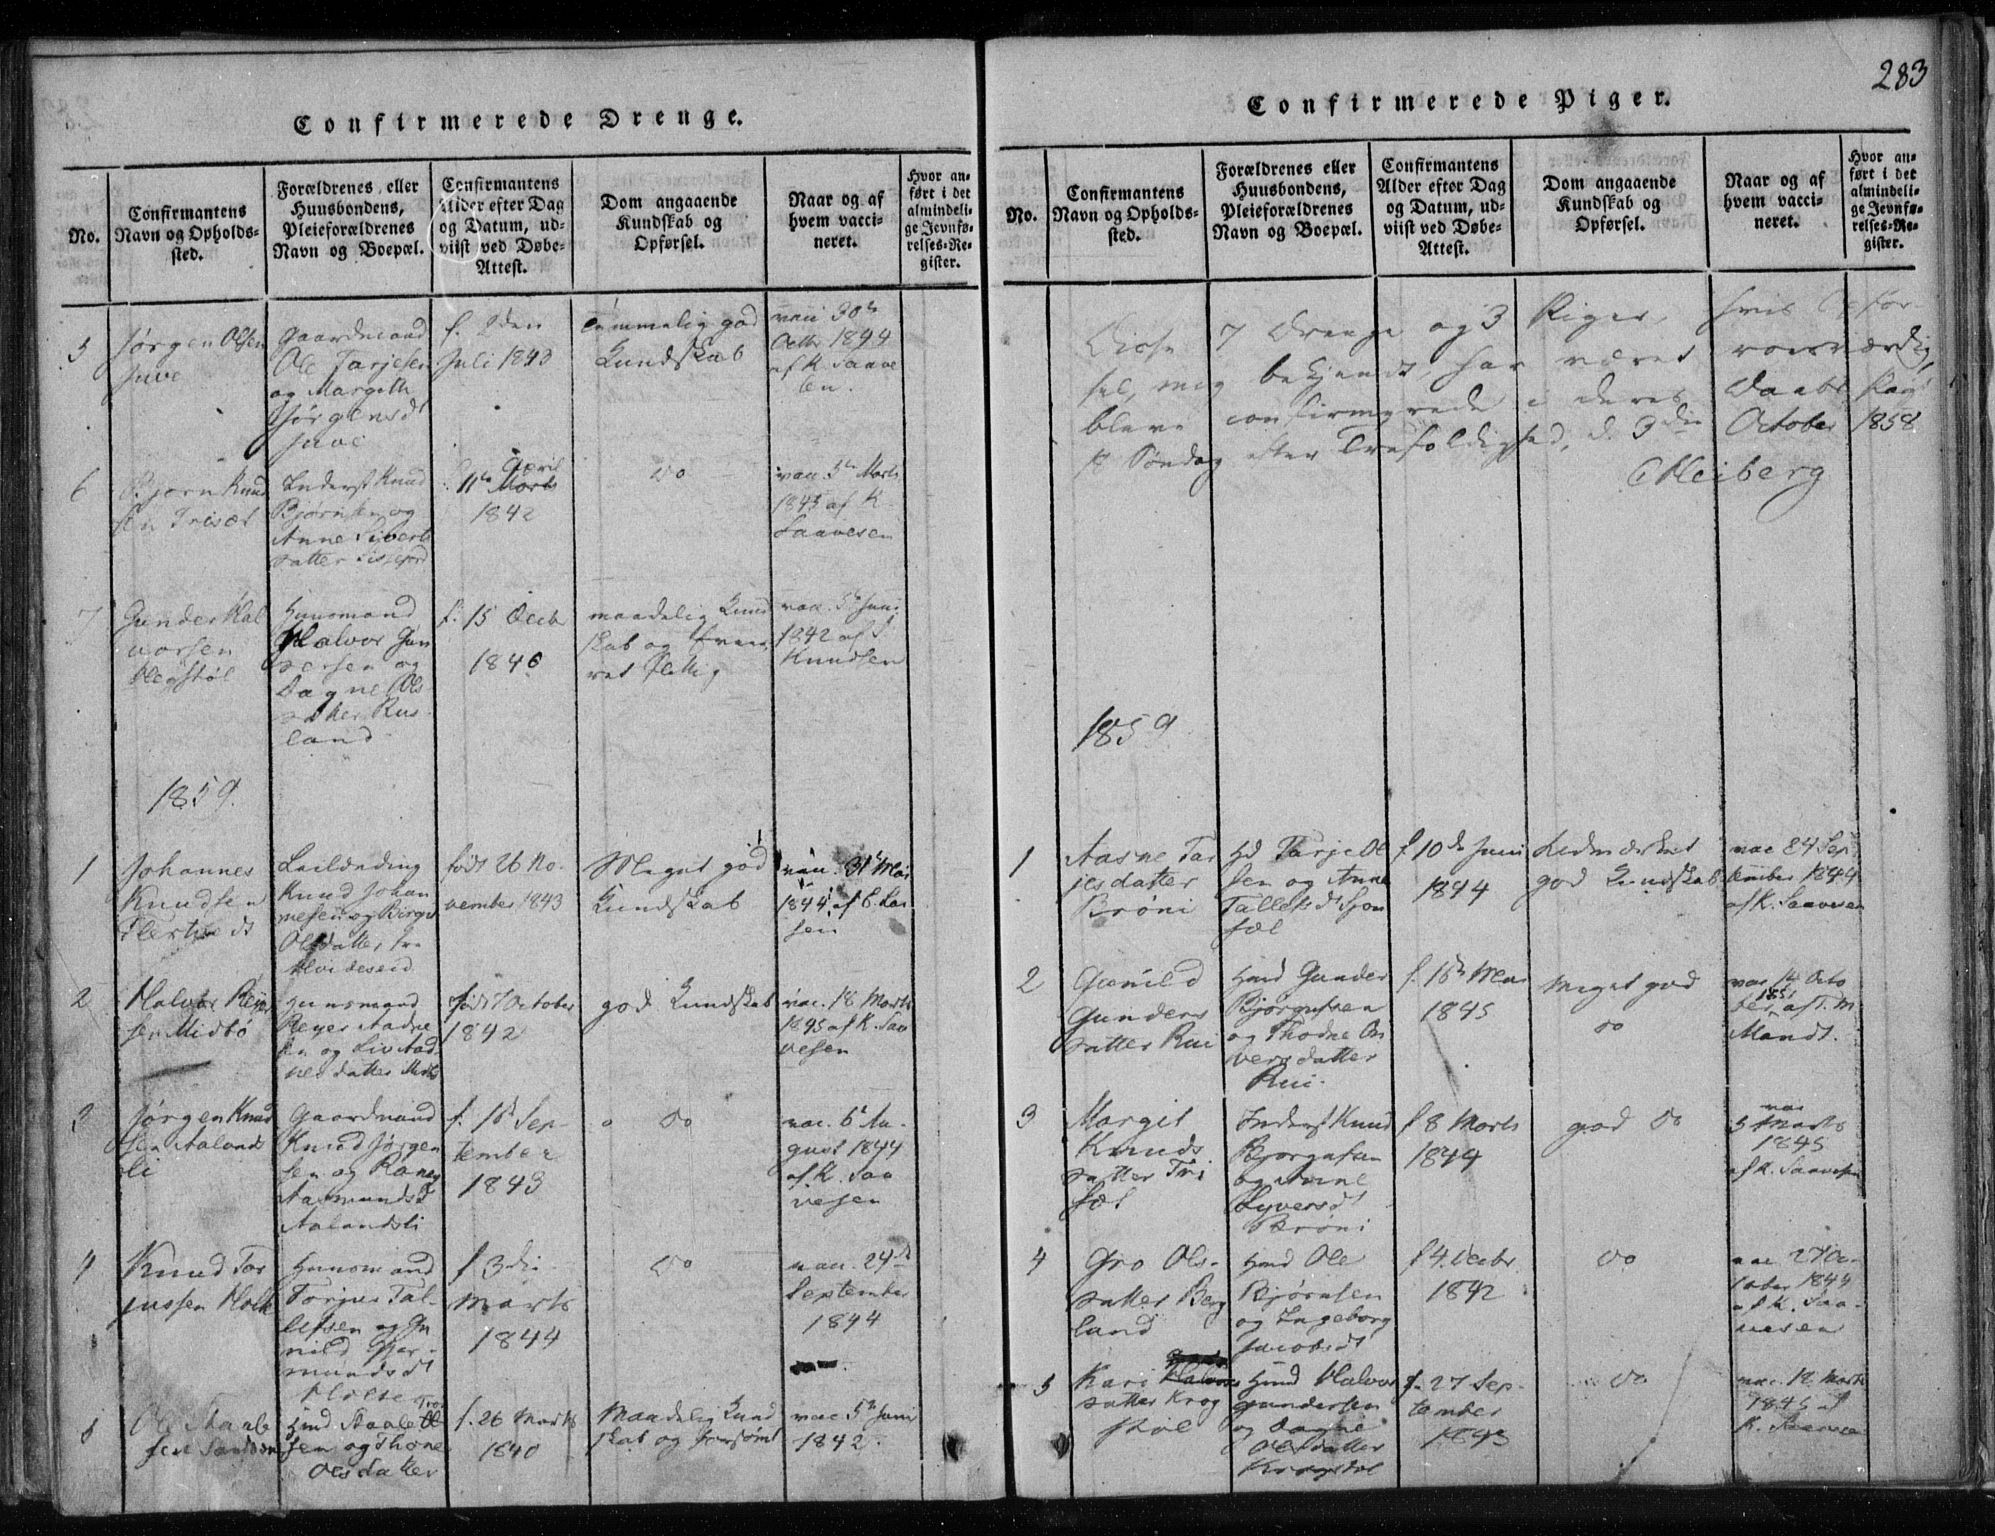 283
Confirmerede Drenge.
No.
Confirmantens
Navn og Opholds-
sted.
Forældrenes eller
Huusbondens,
Pleieforældrenes
Navn og Boepæl.
Confirmantens
Alder efter Dag
og Datum, ud-
viist ved Døbe-
Attest.
Dom angaaende
Kundskab og
Opførsel.
Naar og af
hvem vacci-
neret.
Hvor an-
ført i det
almindeli-
ge Jevnfø-
relses-Re-
gister.
5
Jørgen Olsen
Juve
Gaardmand
Ole Tarjesen
og Margith
Jørgensdt
Juve
f. 2den
Juli 1843
Temmelig god
Kundskab
vac 30te
Octbr 1844
af K. Saave
sen.
6
Bjørn Knud
sen Trisæt
Inderst Knud
Bjørnsen og
Anne Siverts
datter
11te April
1842
do
vac. 5te Marts
1845 af K.
Saavesen
7
Gunder Hal
vorsen
Huusmand
Halvor Gun
dersen og
Dagne Ols
datter Rus
land
f. 15 Decbr
1840
maadelig Kund
skab og
vac. 5te Juni
1842 af
Knudsen
1859.
1
Johannes
Knudsen
Leilænding
Knud Johan
nesen og Birgit
Olsdatter, fra
Hvideseid
født 26 No-
vember 1843
Meget god
Kundskab
vac. 31te Mai
1844 af C. Lar
sen
2
Halvor Reier
sen Midbø
Huusmand
Reyer Aadne
sen og Liv Aad-
nesdatter
født 7 October
1842
god Kundskab
vac. 18 Marts
1845 af K. Saa
vesen
3
Jørgen Knud
sen Aalands
li
Gaardmand
Knud Jørgen
sen og Raneg
Aasmundsdt
Aalandsli
f. 16de Sep-
tember
1843
do
vac. 6te Au-
gust 1844
af K. Saa
vesen
4
Knud Tor
jussen Holte
Huusmand
Torjus Tal-
lefsen og Gu
nild Gjer-
mundsdt
Holte
f 3die
Marts
1844
do
vac. 24de
September
1844
5
Ole Staale
sen
Hmd Staale Ol
sen og Thone
Olsdatter
f. 26 Marts
1840
Maadelig Kund
skab og forsømt
vac 5te Juni
1842.
Confirmerede Piger.
No.
Confirmantens
Navn og Opholds-
sted.
Forældrenes eller
Huusbondens,
Pleieforældrenes
Navn og Boepæl.
Confirmantens
Alder efter Dag
og Datum, ud-
viist ved Døbe-
Attest.
Dom angaaende
Kundskab og
Opførsel.
Naar og af
hvem vacci-
neret.
Hvor an-
ført i det
almindeli-
ge Jevnfø-
relses-Re-
gister.
Disse 7 Drenge og 3 Piger, hvis Opfør-
sel, mig bekjendt, har været roesværdig,
bleve confirmerede i deres Daabs Pagt
Søndag efter Trefoldighed, d. 3die October 1858
Heiberg
1859
1
Aasne Tar
jesdatter
Brøni
Hd Tarje Ol
sen og Anne
Tallefsdt
f 10de Juni
1844
Udmærket
god Kundskab
vac 24 Sep-
tember 1844
af K. Saavesen
2
Gunild
Gunders
datter Rui
Hmd Gunder
Bjørgufsen
og Thone
datter
Rui.
f. 16de Mai
1845
Meget god
do
vac 14 Octo
ber 1851 af T. M
Mandt.
3
Margit
Knuds
datter Tri
sæt
Inderst Knud
og Anne
Brøni
f 8 Marts
1844
god do
vac
5 Marts
1845
af K. Saavesen
4
Gro Ols-
datter Berg
land
Hmd Ole
Bjørnsen
og Ingeborg
Jacobsdt
f 4. Decbr
1842
do
vac 27 Oc-
tober 1844
af K. Saa-
vesen
5
Kari
datter Krog
støl
Hmd Halvor
Gundersen
og Dagne
Olsdatter
f. 27 Sep-
tember
1843
do
vac. 12 Marts
1845 af
K. Saavesen